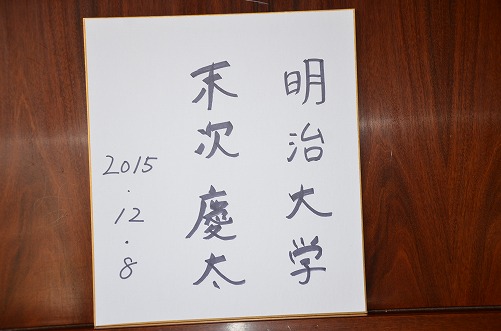 明治大学
末次慶太
2015.12.8